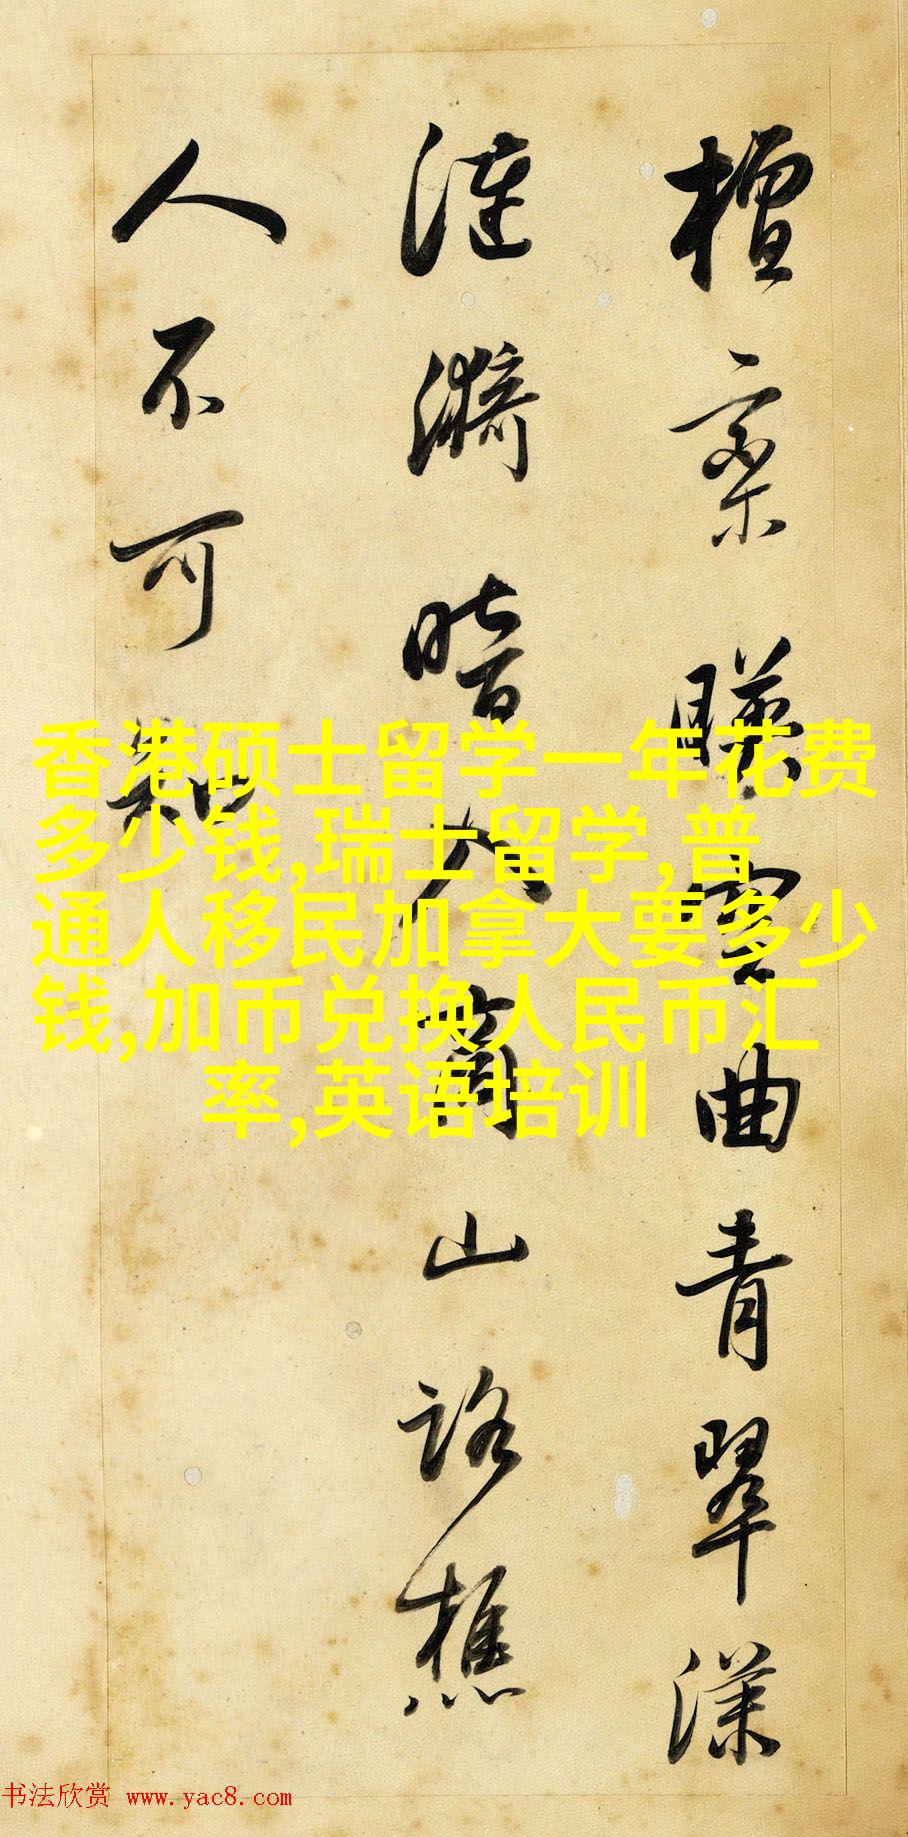 檀欒暎空曲青翠漾
漣漪暗入商山路樵
人不可知
香港硕士留学一年花费
多少钱,瑞士留学,普
通人移民加拿大要多少
钱,加币兑换人民币汇
率,英语培训
书法欣赏 www.yac8.com